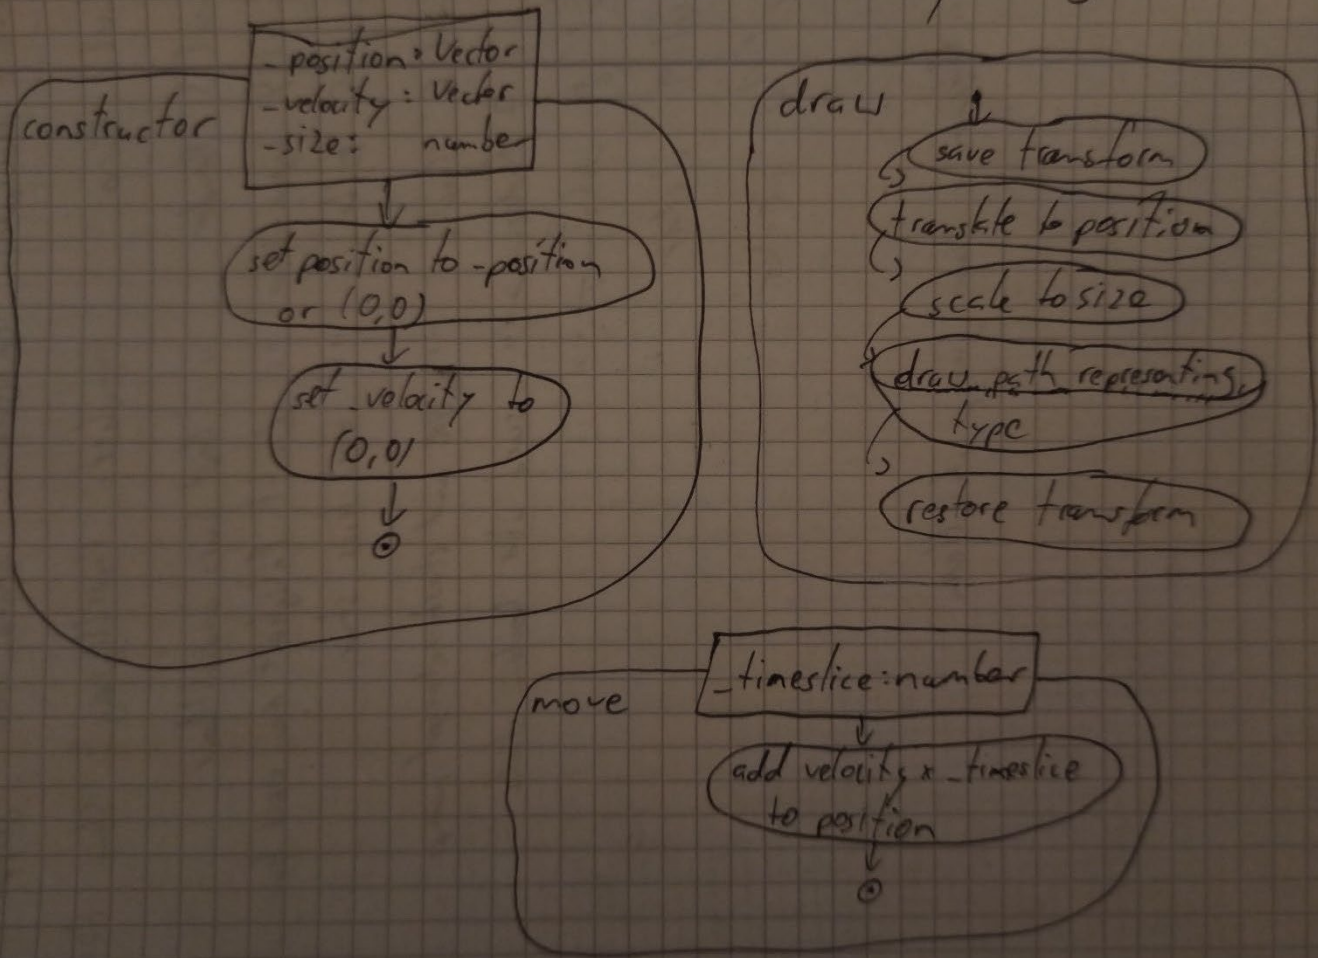 constructor
_position: Vector
_velocity: Vector
_size: number
set position to _position
or (0,0)
set _velocity to
(0,0)
draw
save transform
translate to position
scale to size
draw path representing
type
restore transform
move
_timeslice: number
add velocity x _timeslice
to position